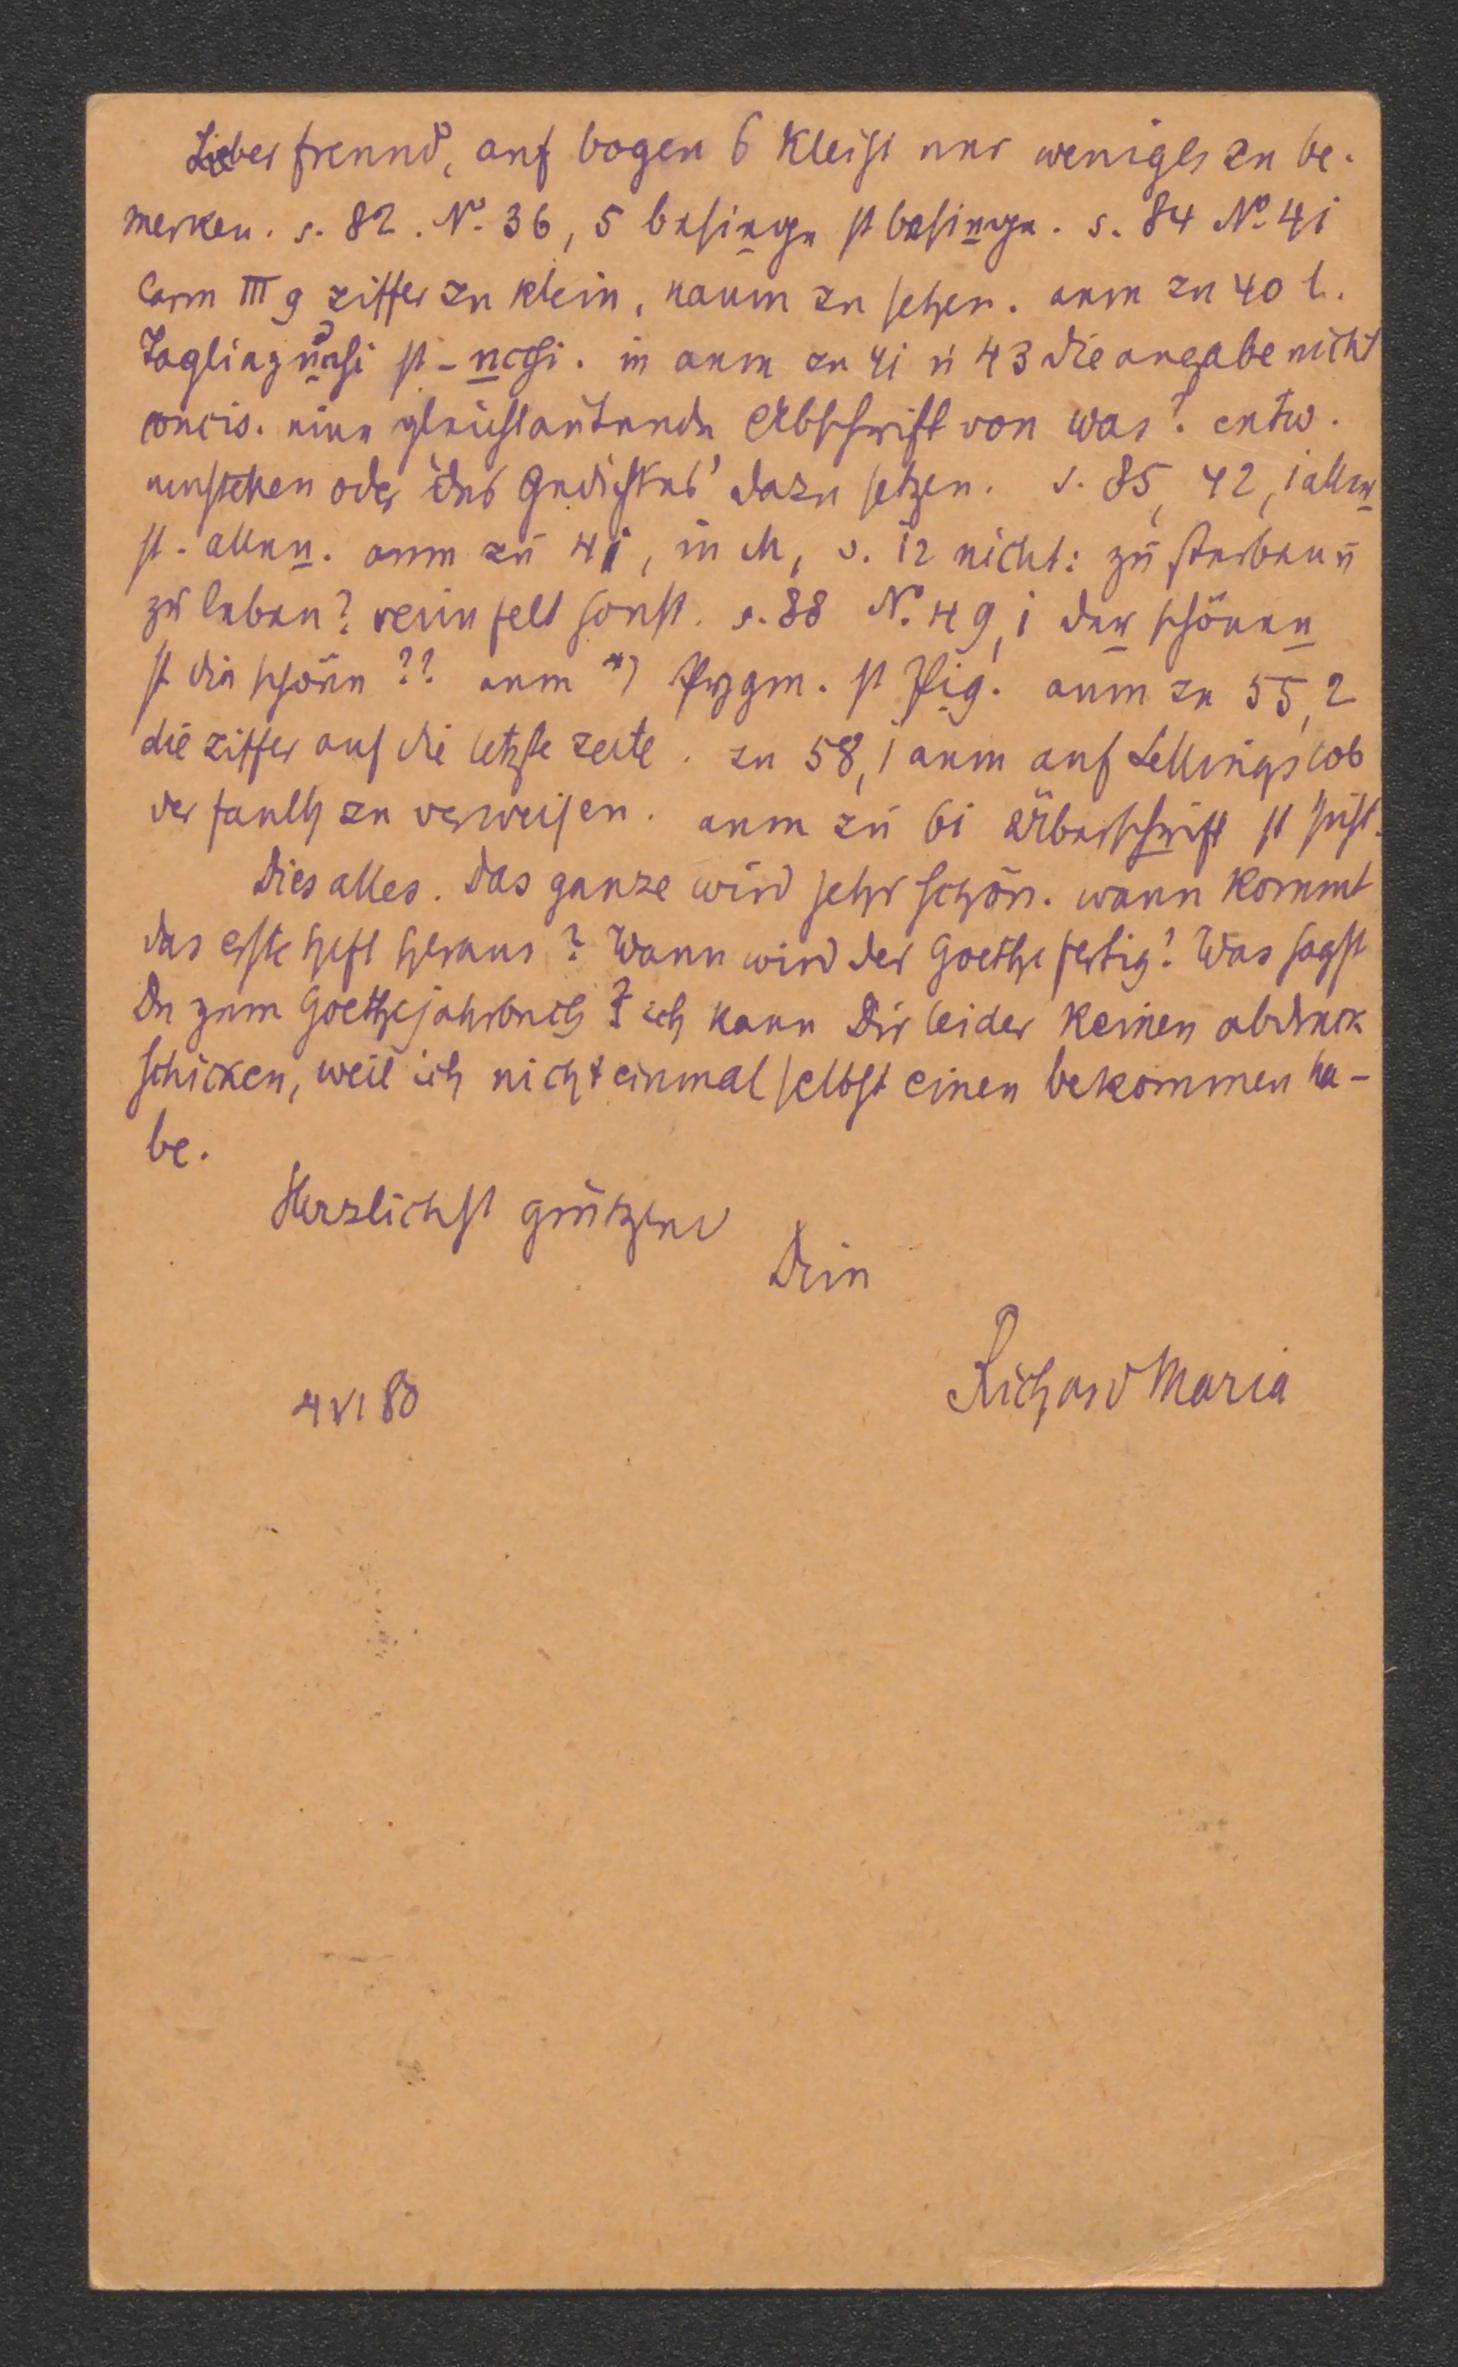 Lieber freund, auf bogen 6 Kleist nur weniges zu be-
merken. s. 82. No. 36, 5 besiege st besinge. s. 84 No. 41
Carm III 9 ziffer zu klein, kaum zu sehen. anm zu 40 l.
st - ncchi. in anm zu 41 u 43 die angabe nicht
concis. eine gleichlautende Abschrift von was? entw.
umstehen oder 'des Gedichtes' dazu setzen. s. 85, 42, 1 aller
st. allen. anm zu 41, in M, s. 12 nicht: zu sterben u
zu leben? reim felt sonst. s. 88 No. 49, 1 der schönen
st die schöne?? anm *) Pygm. st Pig. anm zu 55, 2
die ziffer auf die letzte zeile. zu 58, 1 anm auf Leßings lob
der faulh zu verweisen. anm zu 61 Überschrift st
Dies alles. Das ganze wird sehr schön. wann kommt
das erste heft heraus? Wann wird der Goethe fertig? Was sagst
Du zum Goethejahrbuch? ich kann Dir leider keinen abdruck
schicken, weil ich nicht einmal selbst einen bekommen ha-
be.
Herzlichst grützend
Dein
Richard Maria
4 VI 80